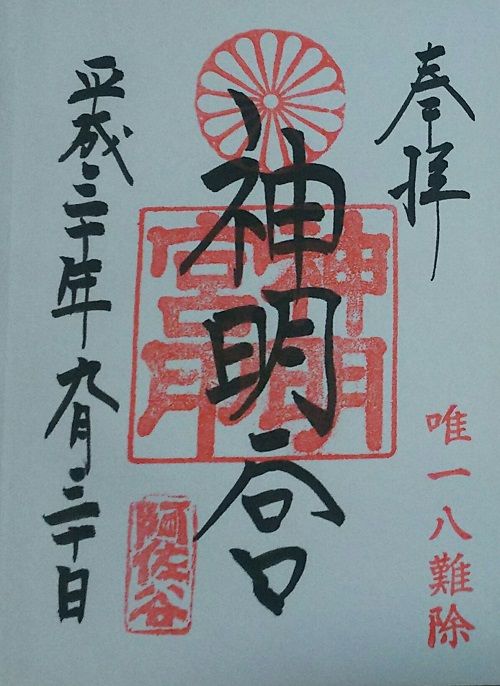 奉拝
唯一八難除
神明宮
神明
宮印
阿佐谷
平成三十年九月三十日